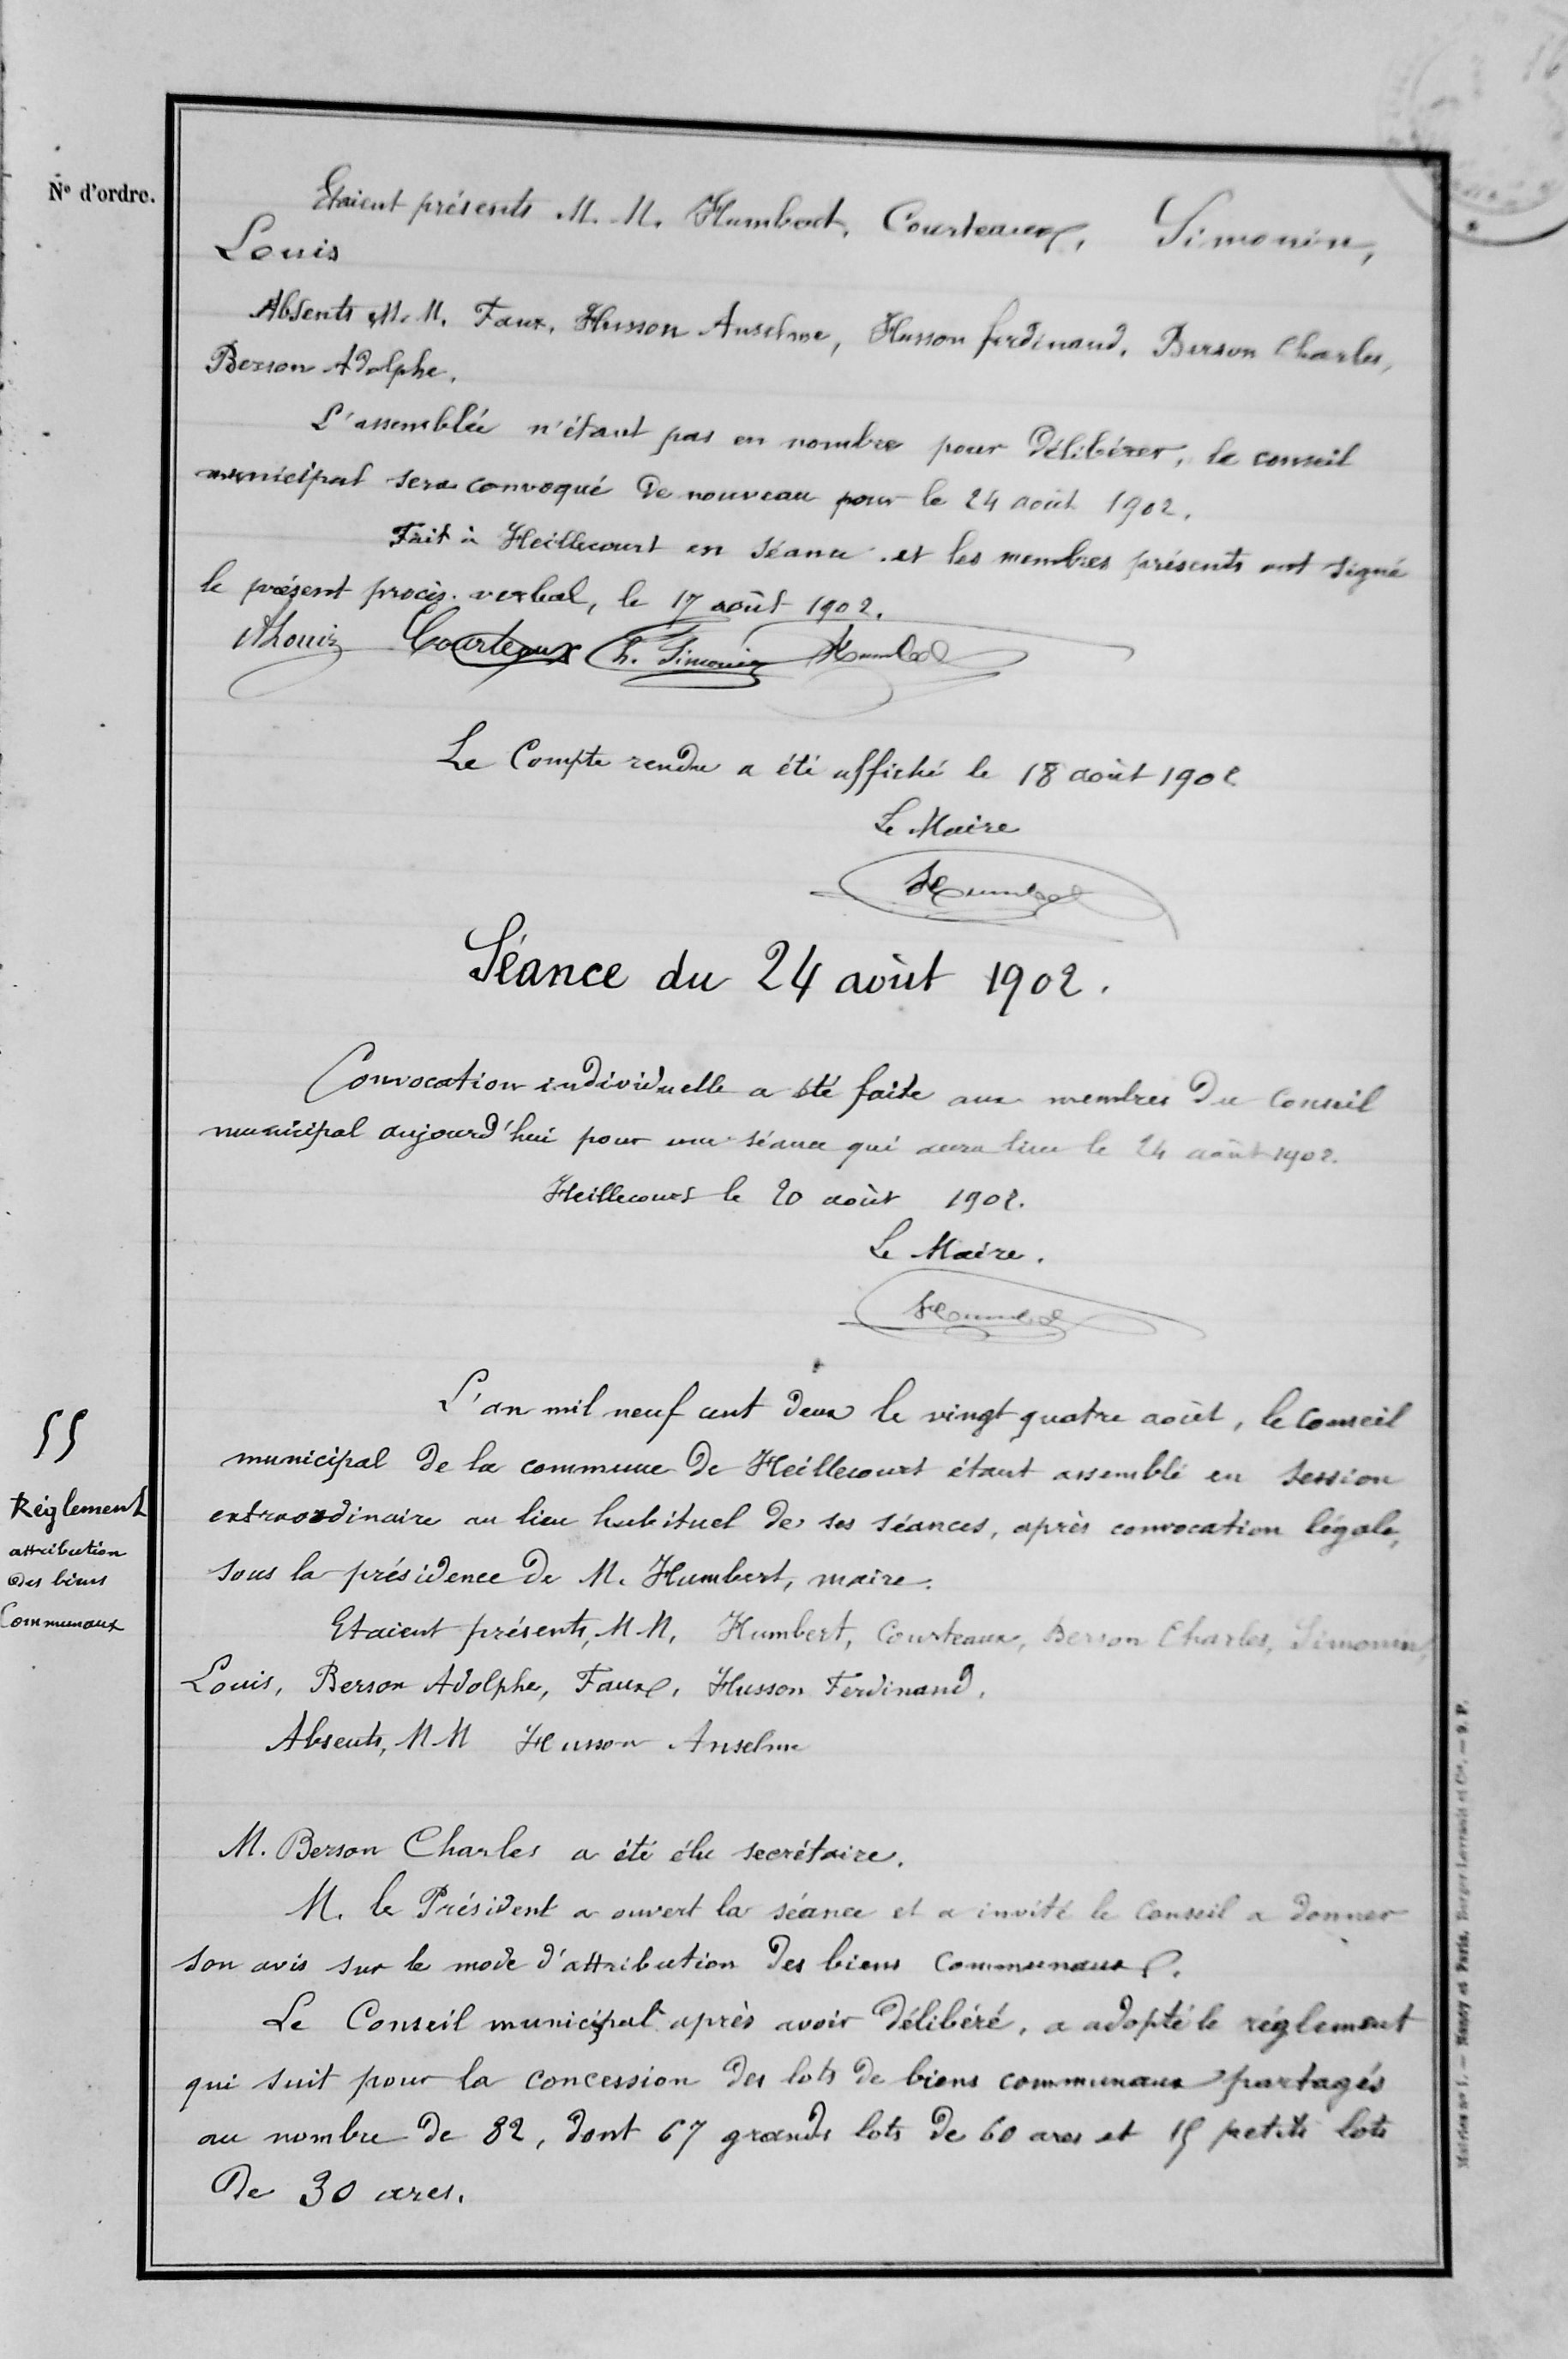 N° d'ordre.
Etaient présents M. M. Humbert, Courteaux, Simonin,
Louis
Absents M. M. Faux, Husson Anselme, Husson ferdinand, Berson Charles,
Berson Adolphe.
L'assemblée n'étant pas en nombre pour délibérer, le conseil
municipal sera convoqué de nouveau pour le 24 août 1902.
Fait à Heillecourt en séance et les membres présents ont signé
le présent procès-verbal, le 17 août 1902.
Courteaux h. Simonin Humbert
Le Compte rendu a été affiché le 18 août 1902
Le Maire
Humbert
Séance du 24 août 1902.
Convocation individuelle a été faite aux membres du Conseil
municipal aujourd'hui pour une séance qui aura lieu le 24 août 1902.
Heillecourt le 20 août 1902.
Le Maire.
Humbert
L'an mil neuf cent deux le vingt quatre août, le Conseil
municipal de la commune de Heillecourt étant assemblé en session
extraordinaire au lieu habituel de ses séances, après convocation légale,
sous la présidence de M. Humbert, maire.
Etaient présents, M M, Humbert, Courteaux, Berson Charles, Simonin,
Louis, Berson Adolphe, Faux, Husson Ferdinand.
Absents, M M Husson Anselme
55
Réglement
attribution
des biens
Communaux
M. Berson Charles a été élu secrétaire.
M. le Président a ouvert la séance et a invité le Conseil a donner
son avis sur le mode d'attribution des biens communaux.
Le Conseil municipal après avoir délibéré, a adopté le réglement
qui suit pour la concession des lots de biens communaux partagés
au nombre de 82, dont 67 grands lots de 60 ares et 15 petits lots
de 30 ares.
Nancy et Paris, Berger-Levrault et Cie.